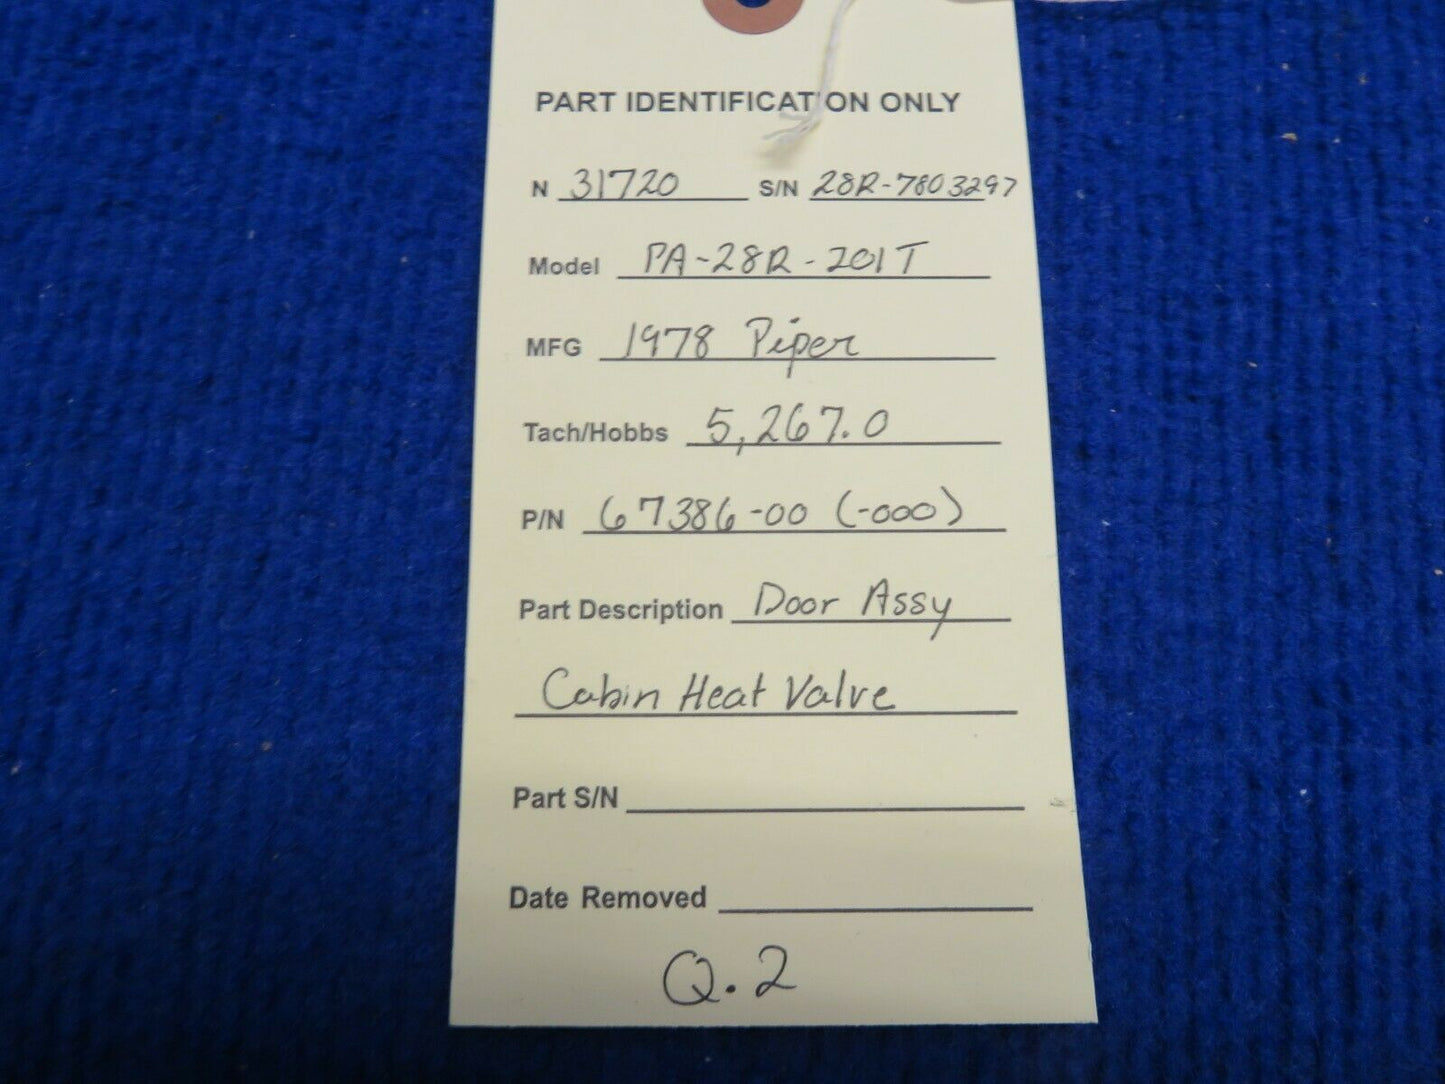 PART IDENTIFICATION ONLY
N 31720 S/N 28R-7803297
Model PA-28R-201T
MFG 1978 Piper
Tach/Hobbs 5,267.0
P/N 67386-00 (-000)
Part Description Door Assy
Cabin Heat Valve
Part S/N
Date Removed
Q.2